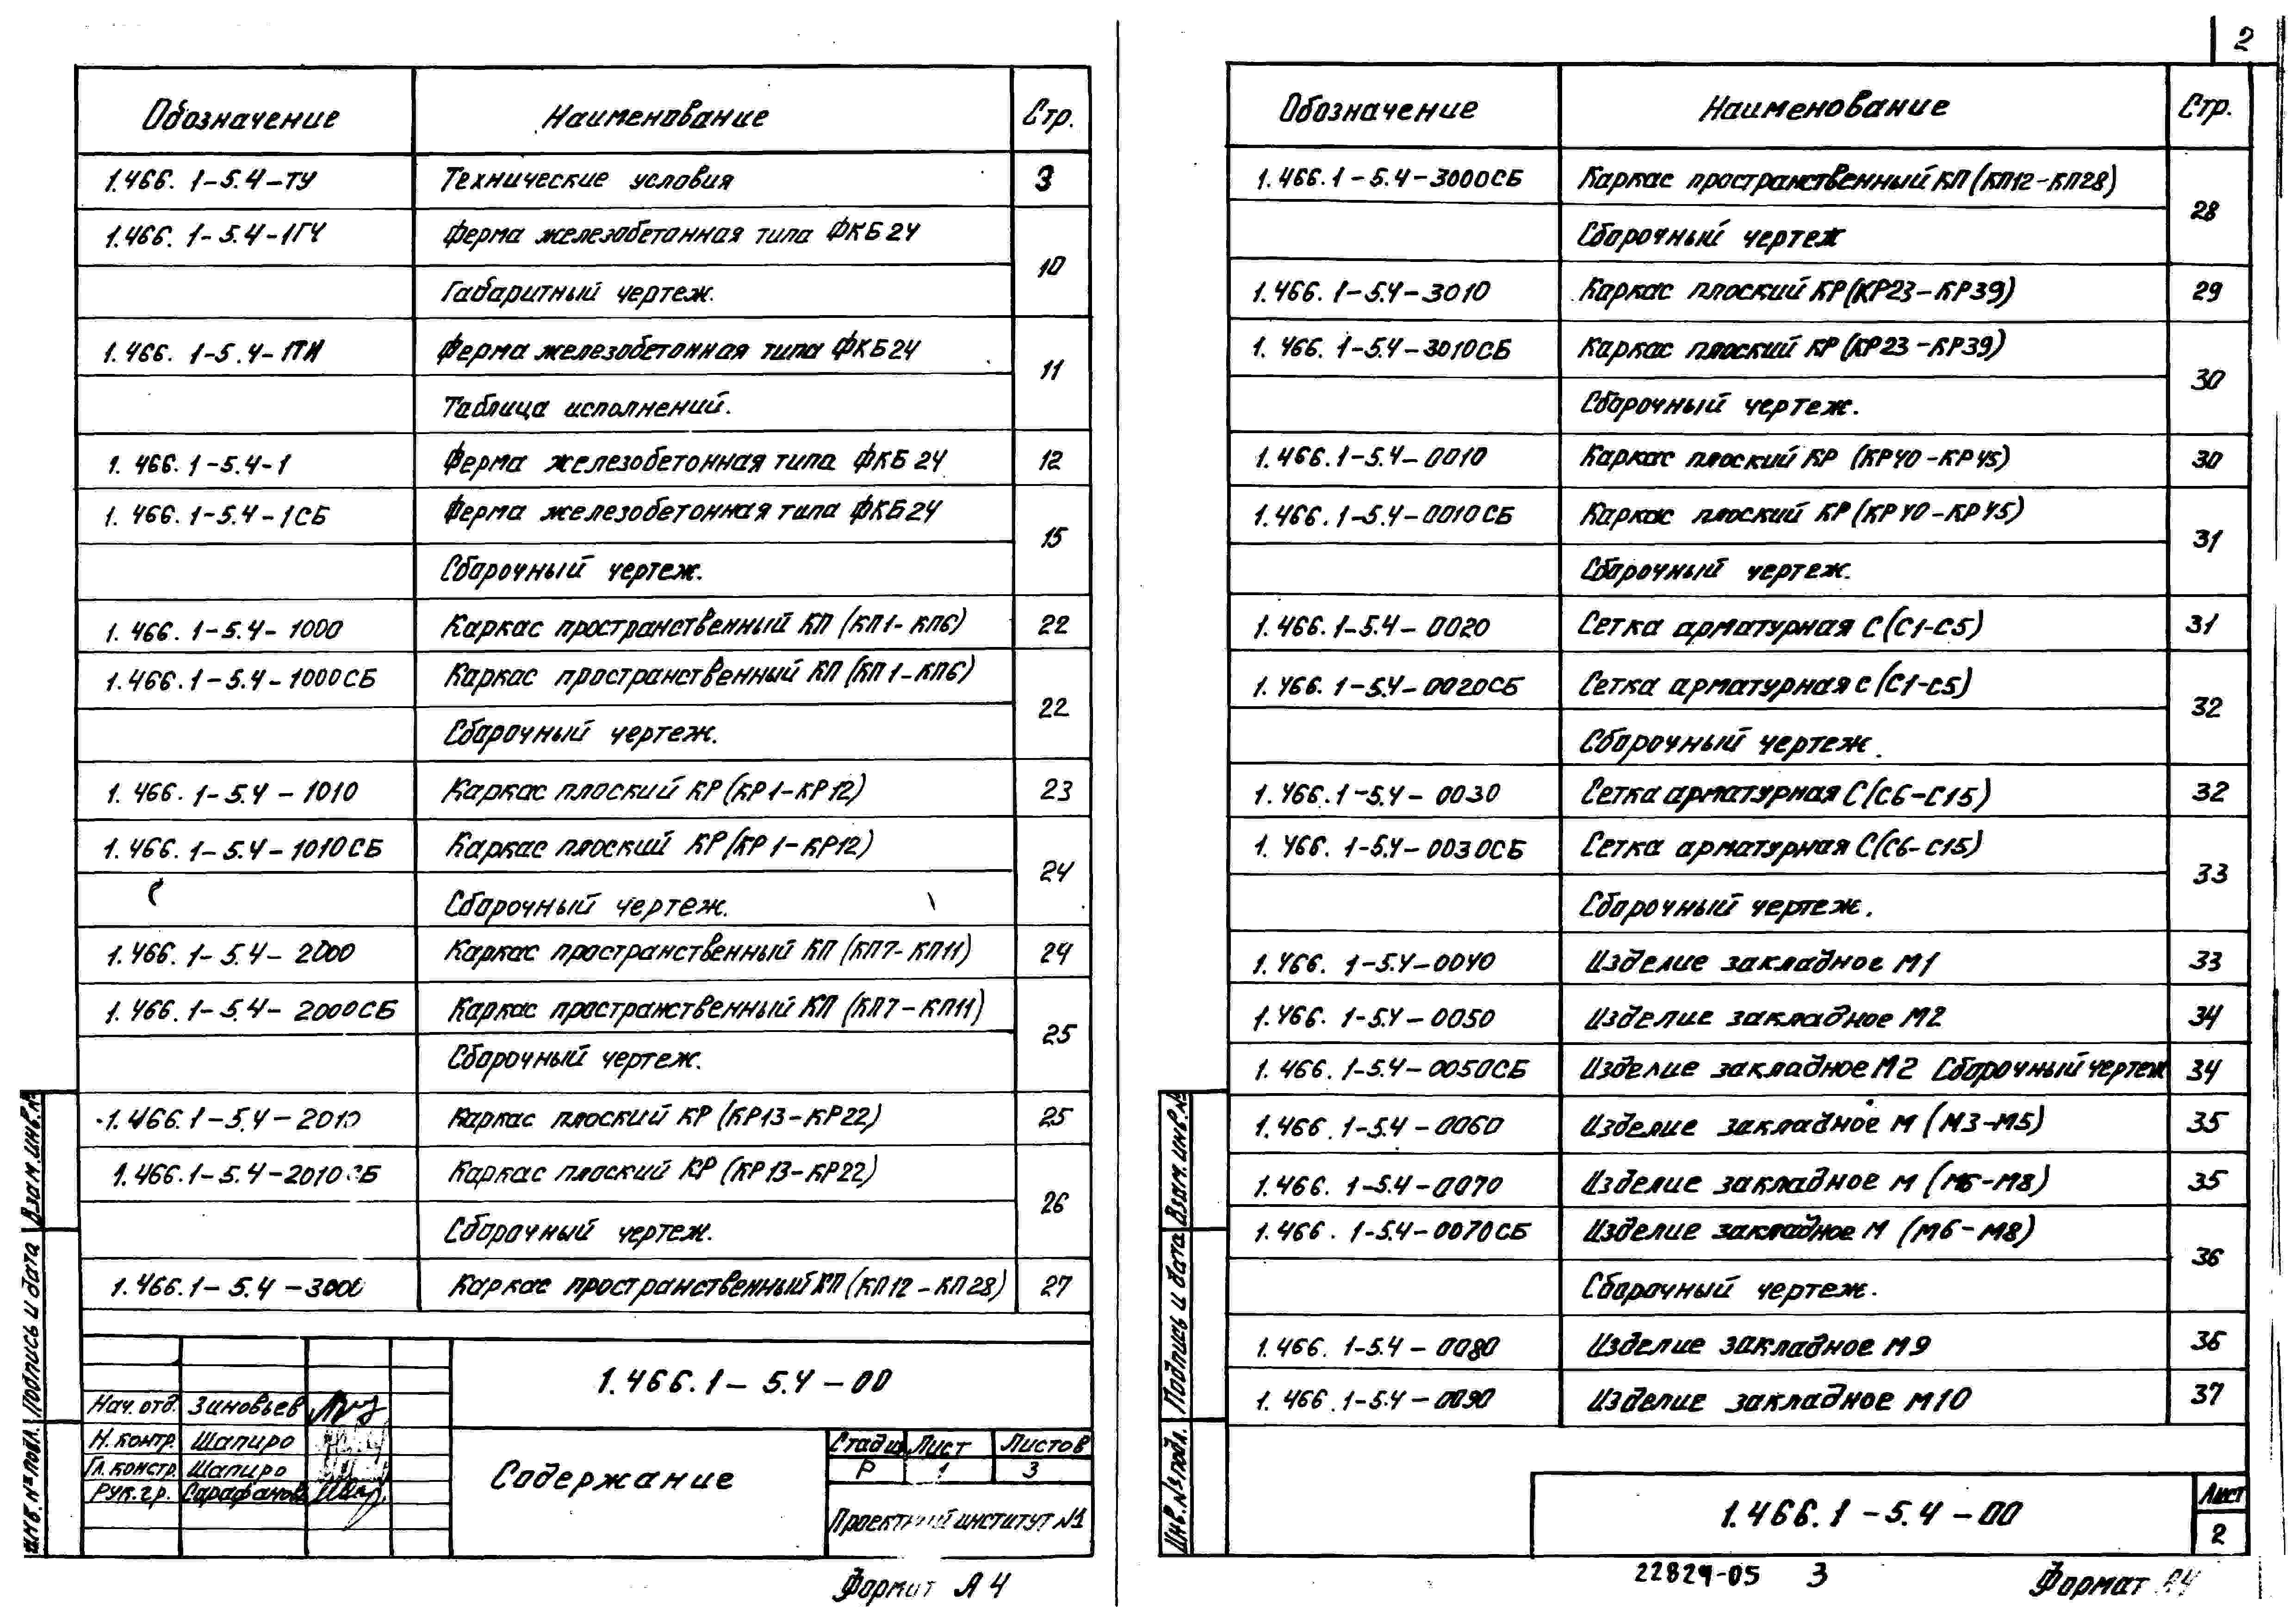 Обозначение Наименование Стр.
1.466.1-5.4-ТУ Технические условия 3
1.466.1-5.4-1ГЧ Ферма железобетонная типа ФКБ24 10
Габаритный чертеж.
1.466.1-5.4-1ТИ Ферма железобетонная типа ФКБ24 11
Таблица исполнений.
1.466.1-5.4-1 Ферма железобетонная типа ФКБ24 12
1.466.1-5.4-1СБ Ферма железобетонная типа ФКБ24 15
Сборочный чертеж.
1.466.1-5.4-1000 Каркас пространственный КП (КП1-КП6) 22
1.466.1-5.4-1000СБ Каркас пространственный КП (КП1-КП6) 22
Сборочный чертеж.
1.466.1-5.4-1010 Каркас плоский КР (КР1-КР12) 23
1.466.1-5.4-1010СБ Каркас плоский КР (КР1-КР12) 24
Сборочный чертеж.
1.466.1-5.4-2000 Каркас пространственный КП (КП7-КП11) 24
1.466.1-5.4-2000СБ Каркас пространственный КП (КП7-КП11) 25
Сборочный чертеж.
1.466.1-5.4-2010 Каркас плоский КР (КР13-КР22) 25
1.466.1-5.4-2010СБ Каркас плоский КР (КР13-КР22) 26
Сборочный чертеж.
1.466.1-5.4-3000 Каркас пространственный КП (КП12-КП28) 27
Взам.инв.№
Подпись и дата
Инв.№подл.
1.466.1-5.4-00
Нач.отд. Зиновьев
Н.контр. Шапиро
Гл.констр. Шапиро
Рук.гр. Сарафанов
Содержание
Стадия Лист Листов
Р 1 3
Проектный институт №1
Формат А4
2
Обозначение Наименование Стр.
1.466.1-5.4-3000СБ Каркас пространственный КП (КП12-КП28) 28
Сборочный чертеж
1.466.1-5.4-3010 Каркас плоский КР (КР23-КР39) 29
1.466.1-5.4-3010СБ Каркас плоский КР (КР23-КР39) 30
Сборочный чертеж.
1.466.1-5.4-0010 Каркас плоский КР (КР40-КР45) 30
1.466.1-5.4-0010СБ Каркас плоский КР (КР40-КР45) 31
Сборочный чертеж.
1.466.1-5.4-0020 Сетка арматурная С (С1-С5) 31
1.466.1-5.4-0020СБ Сетка арматурная С (С1-С5) 32
Сборочный чертеж.
1.466.1-5.4-0030 Сетка арматурная С (С6-С15) 32
1.466.1-5.4-0030СБ Сетка арматурная С (С6-С15) 33
Сборочный чертеж.
1.466.1-5.4-0040 Изделие закладное М1 33
1.466.1-5.4-0050 Изделие закладное М2 34
1.466.1-5.4-0050СБ Изделие закладное М2 Сборочный чертеж 34
1.466.1-5.4-0060 Изделие закладное М (М3-М5) 35
1.466.1-5.4-0070 Изделие закладное М (М6-М8) 35
1.466.1-5.4-0070СБ Изделие закладное М (М6-М8) 36
Сборочный чертеж.
1.466.1-5.4-0080 Изделие закладное М9 36
1.466.1-5.4-0090 Изделие закладное М10 37
Взам.инв.№
Подпись и дата
Инв.№подл.
1.466.1-5.4-00
Лист
2
22829-05 3
Формат А4